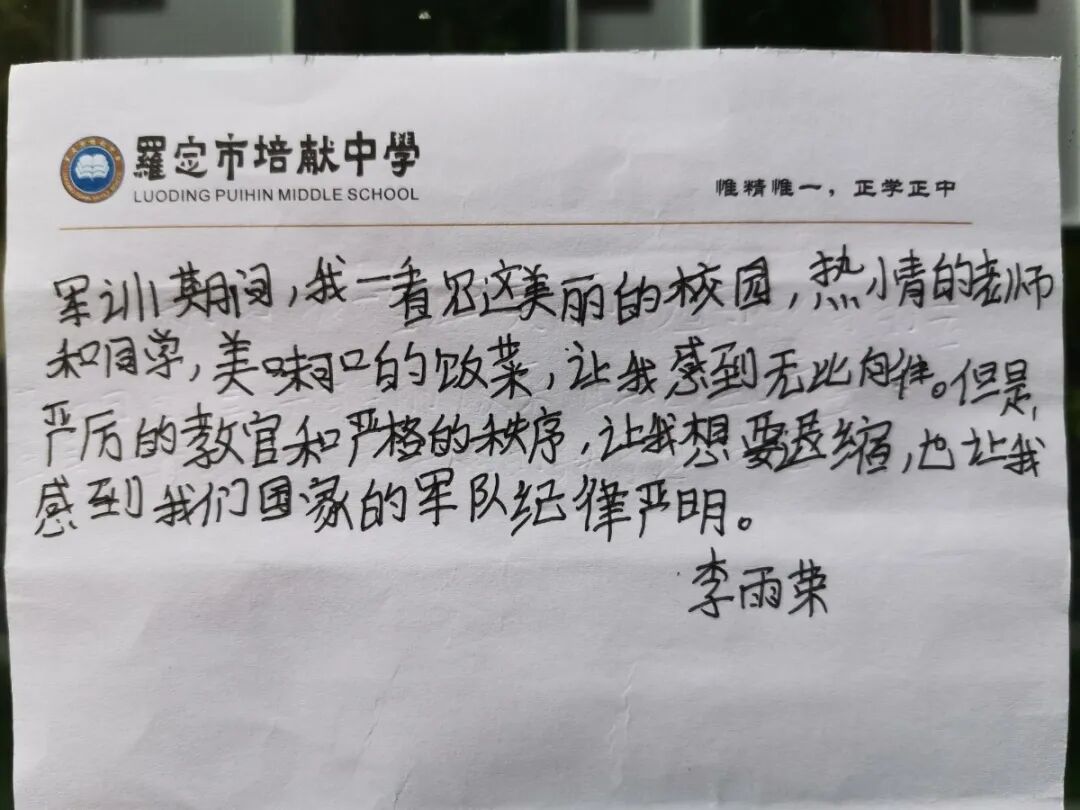 羅定市培献中學
LUODING PUIHIN MIDDLE SCHOOL
惟精惟一，正学正中
军训期间，我一看见这美丽的校园，热情的老师
和同学，美味可口的饭菜，让我感到无比向往。但是，
严厉的教官和严格的秩序，让我想要退缩，也让我
感到我们国家的军队纪律严明。
李雨荣